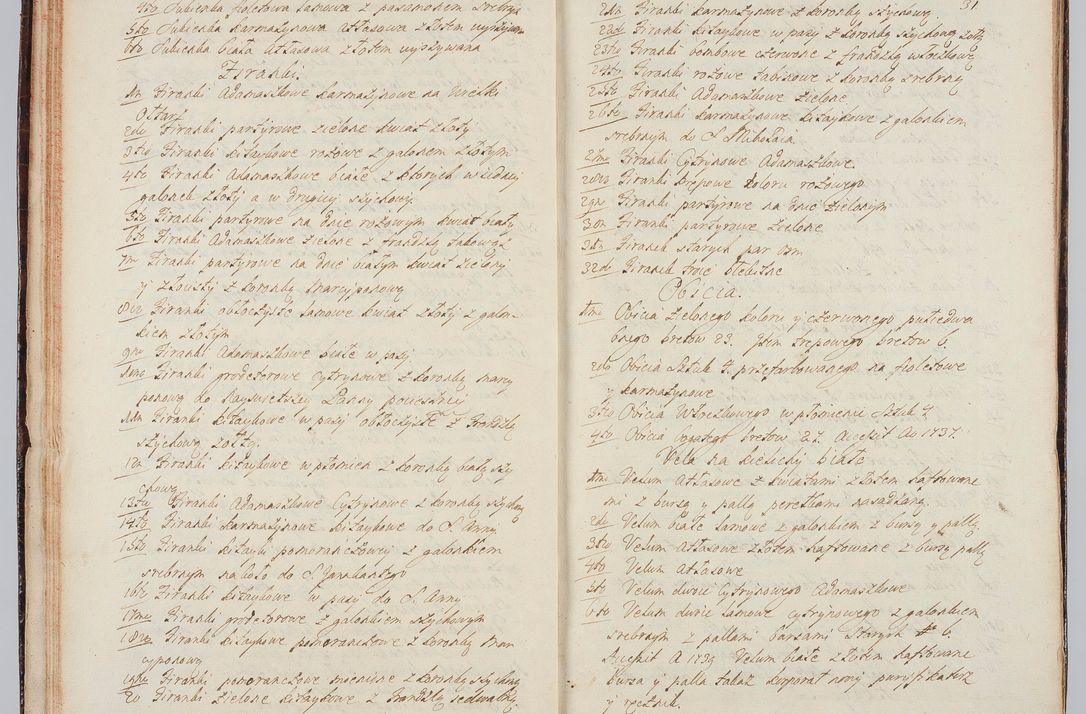 4to Sukienka fioletowa lamowa z pasamonem srebr
5to Sukienka karmazynowa atłasowa złotem wyszywan
6to Sukienka biała atłasowa złotem wyszywana
Firanki.
1a Firanki Adamaszkowe karmazynowe na wielki
Ołtarz
2da Firanki partyrowe zielone kwiat złoty
3tia Firanki kitaykowe rożowe z galonem złotym
4ta Firanki Adamaszkowe białe z ktorych w iedney
galonek złoty a w drugiey szychowy.
5ta Firanki partyrowe na dnie rożowym kwiat biały
6ta Firanki Adamaszkowe zielone z frandzlą
7m Firanki partyrowe na dnie białym kwiat zielony
y złocisty z koronką marcypanową
8va Firanki obłoczyste lamowe kwiat złoty z galon-
kiem złotym
9na Firanki Adamaszkowe białe w pasy
10ma Firanki grodetorowe Cytrynowe z koronką marcy
panową do Nayswiętszey Panny
11a Firanki kitaykowe w pasy obłoczyste z frandzlą
szychową zołtą.
12a Firanki kitaykowe w płomien z koronką białą szy
chową
13tia Firanki Adamaszkowe Cytrynowe z koronką szychową
14ta Firanki karmazynowe kitaykowe do S. Anny
15ta Firanki kitayki pomorańczowey z galonkiem
srebrnym na boło do S. Jana Kantego
16ta Firanki kitaykowe w pasy do S. Anny
17ma Firanki grodetorowe z galonkiem szychowym
18va Firanki kitaykowe pomoranczowe z koronką mar
cypanową
19na Firanki pomoranczowe mienione z koronką szychową
20 Firanki zielone kitaykowe z frandzlą iedwabną
31.
21a Firanki karmazynowe z koronką szychową
22da Firanki kitaykowe w pasy z koronką szychową zołtą
23tia Firanki bombowe czerwone z frandzlą włoczkową
24ta Firanki rożowe tabinowe z koronką srebrną
25ta Firanki Adamaszkowe zielone
26ta Firanki karmazynowe kitaykowe z galonkiem
srebrnym do S. Mikołaia
27ma Firanki Cytrynowe Adamaszkowe
28va Firanki krepowe koloru rożowego
29na Firanki partyrowe na dnie zielonym
30a Firanki partyrowe zielone
31a Firanek starych par osm
32da Firanek troie błekitne
Obicia.
1ma Obicia zielonego koloru y czerwonego pułiedwa
bnego bretow 23. Item bretow 6.
2da Obicia Sztuk 7. przefarbowanego na fioletowe
y karmazynowe
3tia Obicia Włoczkowego w płomienie Sztuk 4
4ta Obicia bogatego bretow 27. Accepit Ao 1737.
Vela na kielichy białe
1ma Velum Atłasowe z kwiatami złotem haftowane
mi z bursą y pallą perełkami nasadzaną.
2da Velum białe lamowe z galonkiem z bursą y pallą
3tia Velum atłasowe złotem haftowane z bursą y pallą
4ta Velum Atłasowe
5ta Velum dwoie Cytrynowego Adamaszkowe
6ta Velum dwoie lamowe Cytrynowego z galonkiem
srebrnym z pallami bursami Starych # 6
Accepit A 1739 Velum białe złotem haftowane
bursa y palla takaż korporał nowy puryfikaterz
y ręcznik.